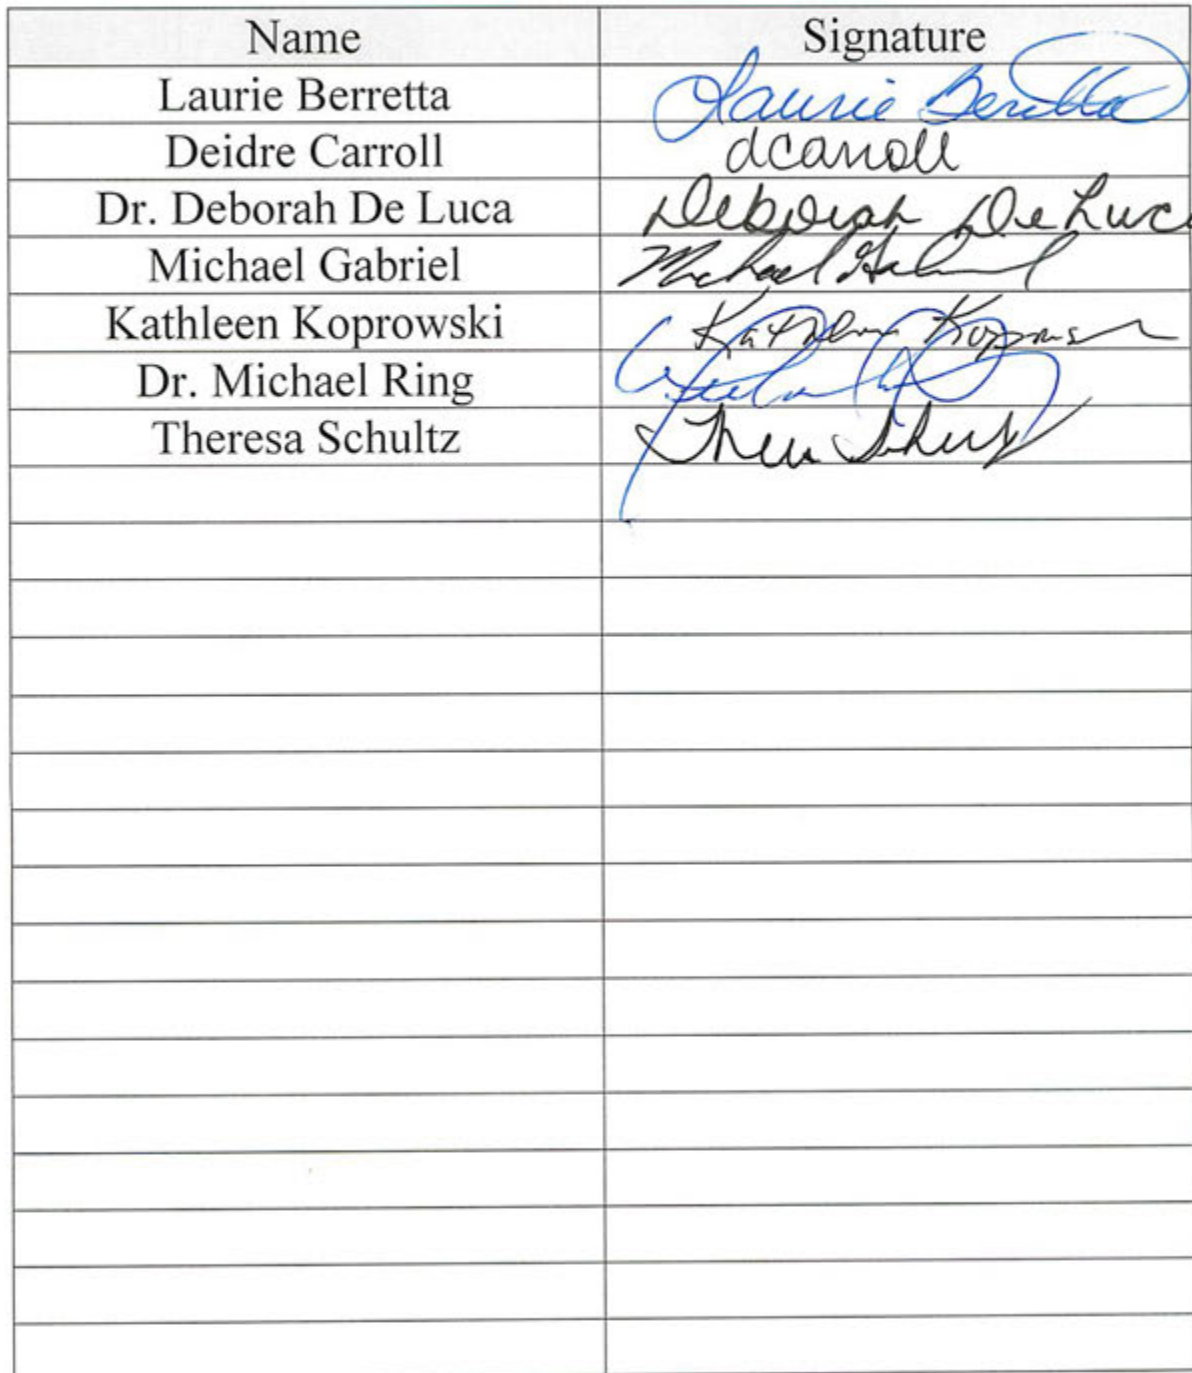 Name Signature
Laurie Berretta Laurie Beretta
Deidre Carroll dcarroll
Dr. Deborah De Luca Deborah De Luca
Michael Gabriel Michael
Kathleen Koprowski Kathleen
Dr. Michael Ring
Theresa Schultz